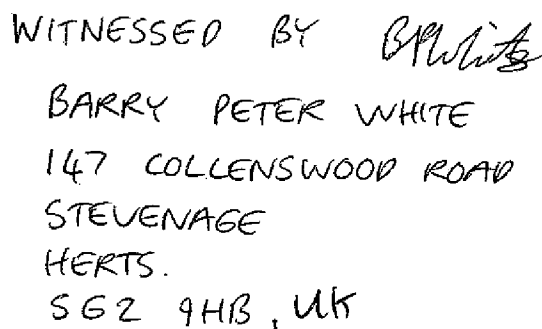 WITNESSED BY BPWhite
BARRY PETER WHITE
147 COLLENSWOOD ROAD
STEVENAGE
HERTS.
SG2 9HB, UK